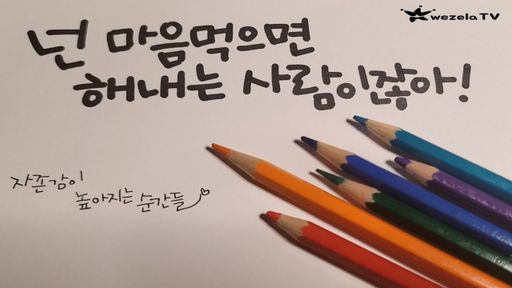 wezela TV
넌 마음먹으면
해내는 사람이잖아!
자존감이
높아지는 순간들